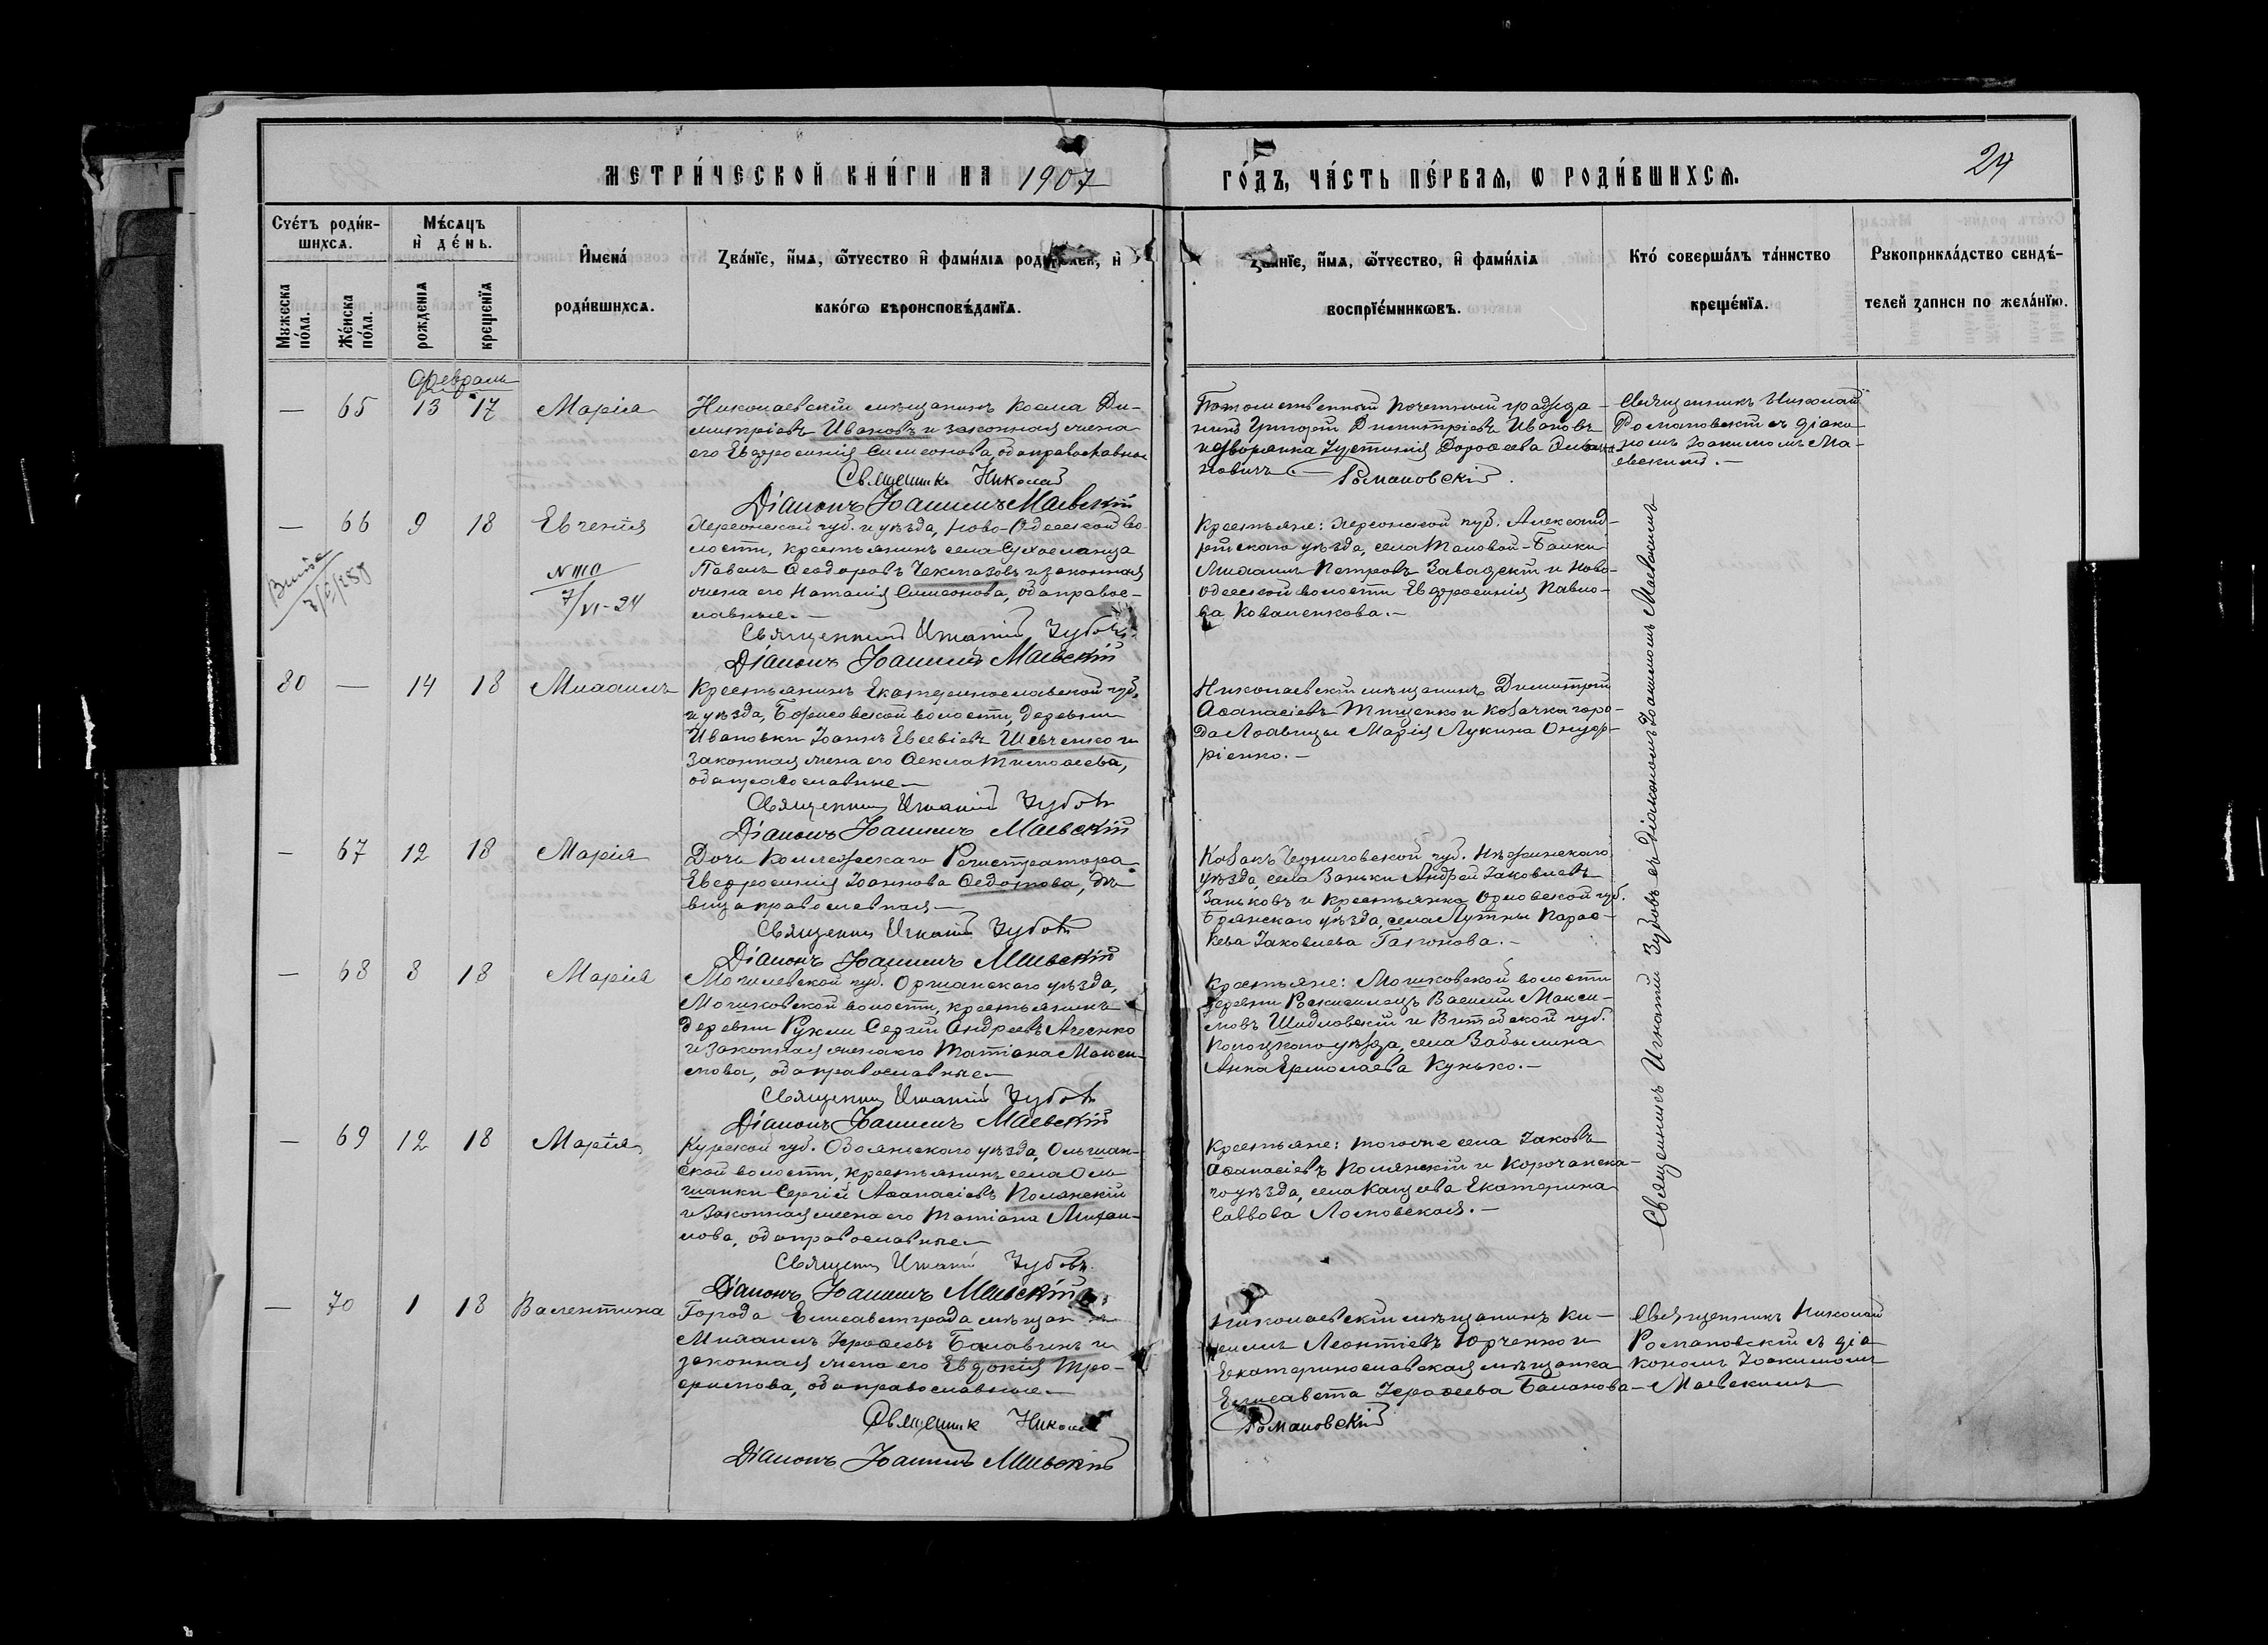 МЕТРИ́ЧЕСКОЙ КНИ́ГИ НА 1907
ГО́ДЪ, ЧА́СТЬ ПЕ́РВАЯ, Ѡ РОДИ́ВШИХСѦ.
24
Сче́тъ роди́в-
шихсѧ.
Мѣ́сяцъ
и҆ де́нь.
Мꙋжеска по́ла.
Же́нска по́ла.
рожденїѧ
крещенїѧ
И҆мена́
роди́вшихсѧ.
Зва́нїе, и҆́мѧ, ѻ҆́тчество и҆ фами́лїѧ роди́телей, и҆
како́гѡ вѣроисповѣ́данїѧ.
Зва́нїе, и҆́мѧ, ѻ҆́тчество, и҆ фами́лїѧ
воспрїе́мникѡвъ.
Кто́ соверша́лъ та́инство
креще́нїѧ.
Рꙋкоприкла́дство свидѣ́-
телей записи по жела́нїю.
Февраль
— 65 13 17 Марія
Николаевскій мѣщанинъ Косма Ди-
митріевъ Ивановъ и законная жена
его Евфросинія Симеонова, оба православные
Священникъ Николай
Діаконъ Іоакимъ Маевскій
Потомственный Почетный гражда-
нинъ Григорій Димитріевъ Ивановъ
и дворянка Іустинія Дороѳеева
новичъ.— Романовскій.
Священникъ Николай
Романовскій съ діако-
номъ Іоакимомъ Ма-
евскимъ.—
— 66 9 18 Евгенія
N 1110
7/VI-24
Херсонской губ. и уѣзда, Ново-Одесской во-
лости, крестьянинъ села Сухоеланца
Павелъ Ѳеодоровъ Чекмазовъ и законная
жена его Наталія Симеонова, оба правос-
лавные.—
Священникъ Игнатій Зубовъ
Діаконъ Іоакимъ Маевскій
Крестьяне: Херсонской губ. Александ-
рійскаго уѣзда, села Топовой-Балки
Михаилъ Петровъ Завадскій и Ново-
одесской волости Евфросинія Павло-
ва Коваленкова.—
Священникъ Игнатій Зубовъ съ Діакономъ Іоакимомъ Маевскимъ
80 — 14 18 Михаилъ
Крестьянинъ Екатеринославской губ.
и уѣзда, Борисовской волости, деревни
Ивановки Іоаннъ Евсевіевъ Шевченко и
законная жена его Ѳекла Тимоѳеева,
оба православные—
Священникъ Игнатій Зубовъ
Діаконъ Іоакимъ Маевскій
Николаевскій мѣщанинъ Димитрій
Аѳанасіевъ Тищенко и козачка горо-
да Лохвицы Марія Лукина Онуф-
ріенко.—
— 67 12 18 Марія
Дочь Коллежскаго Регистратора
Евфросинія Іоаннова Ѳедотова, дѣ-
вица православная—
Священникъ Игнатій Зубовъ
Діаконъ Іоакимъ Маевскій
Козакъ Черниговской губ. Нѣжинскаго
уѣзда, села Заньки Андрей Іаковлевъ
Заньковъ и крестьянка Орловской губ.
Брянскаго уѣзда, села Лутны Парас-
кева Іаковлева Гапонова.—
— 68 8 18 Марія
Могилевской губ. Оршанскаго уѣзда,
Мошковской волости, крестьянинъ
деревни Рукли Сергій Андреевъ Агеенко
и законная жена его Татіана Макси-
мова, оба православные—
Священникъ Игнатій Зубовъ
Діаконъ Іоакимъ Маевскій
Крестьяне: Мошковской волости
деревни Василій Макси-
мовъ Шидловскій и Витебской губ.
Полоцкаго уѣзда, села
Анна Ермолаева Кунько.—
— 69 12 18 Марія
Курской губ. Обоянскаго уѣзда, Ольшан-
ской волости, крестьянинъ села Оль-
шанки Сергій Аѳанасіевъ Полянскій
и законная жена его Татіана Михаи-
лова, оба православные—
Священникъ Игнатій Зубовъ
Діаконъ Іоакимъ Маевскій
Крестьяне: того же села Іаковъ
Аѳанасіевъ Полянскій и Корочанска-
го уѣзда, села Екатерина
Саввова Лосновская.—
— 70 1 18 Валентина
Города Елисаветграда мѣщан
Михаилъ Іероѳеевъ Балавинъ и
законная жена его Евдокія Тро-
фимова, оба православные—
Священникъ Николай
Діаконъ Іоакимъ Маевскій
Николаевскій мѣщанинъ Ки-
риллъ Леонтіевъ Юрченко и
Екатеринославская мѣщанка
Елисавета Іероѳеева Баланова—
Романовскій
Священникъ Николай
Романовскій съ діа-
кономъ Іоакимомъ
Маевскимъ